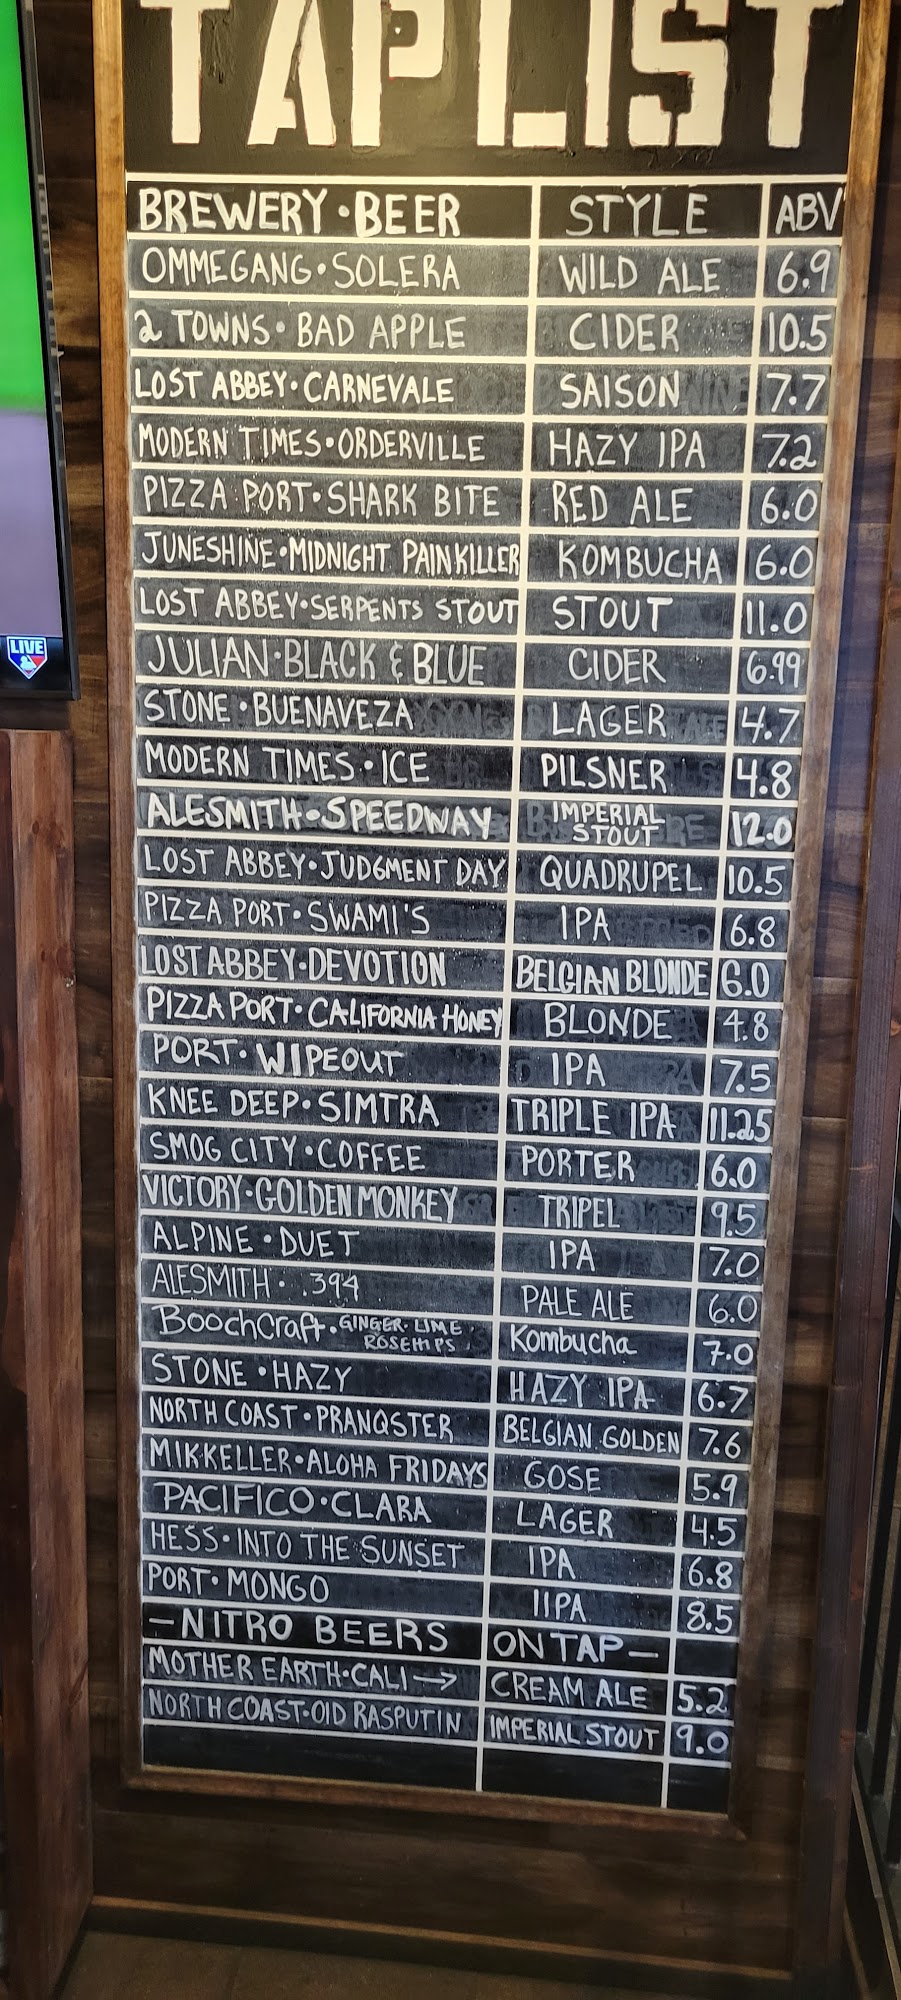 TAPLIST
BREWERY · BEER STYLE ABV
OMMEGANG · SOLERA WILD ALE 6.9
2 TOWNS · BAD APPLE CIDER 10.5
LOST ABBEY · CARNEVALE SAISON 7.7
MODERN TIMES · ORDERVILLE HAZY IPA 7.2
PIZZA PORT · SHARK BITE RED ALE 6.0
JUNESHINE · MIDNIGHT PAINKILLER KOMBUCHA 6.0
LOST ABBEY · SERPENTS STOUT STOUT 11.0
JULIAN · BLACK & BLUE CIDER 6.99
STONE · BUENAVEZA LAGER 4.7
MODERN TIMES · ICE PILSNER 4.8
ALESMITH · SPEEDWAY IMPERIAL STOUT 12.0
LOST ABBEY · JUDGMENT DAY QUADRUPEL 10.5
PIZZA PORT · SWAMI'S IPA 6.8
LOST ABBEY · DEVOTION BELGIAN BLONDE 6.0
PIZZA PORT · CALIFORNIA HONEY BLONDE 4.8
PORT · WIPEOUT IPA 7.5
KNEE DEEP · SIMTRA TRIPLE IPA 11.25
SMOG CITY · COFFEE PORTER 6.0
VICTORY · GOLDEN MONKEY TRIPEL 9.5
ALPINE · DUET IPA 7.0
ALESMITH · .394 PALE ALE 6.0
BoochCraft · GINGER LIME ROSEHIPS Kombucha 7.0
STONE · HAZY HAZY IPA 6.7
NORTH COAST · PRANQSTER BELGIAN GOLDEN 7.6
MIKKELLER · ALOHA FRIDAYS GOSE 5.9
PACIFICO · CLARA LAGER 4.5
HESS · INTO THE SUNSET IPA 6.8
PORT · MONGO IIPA 8.5
- NITRO BEERS ON TAP -
MOTHER EARTH · CALI → CREAM ALE 5.2
NORTH COAST · OLD RASPUTIN IMPERIAL STOUT 9.0
LIVE